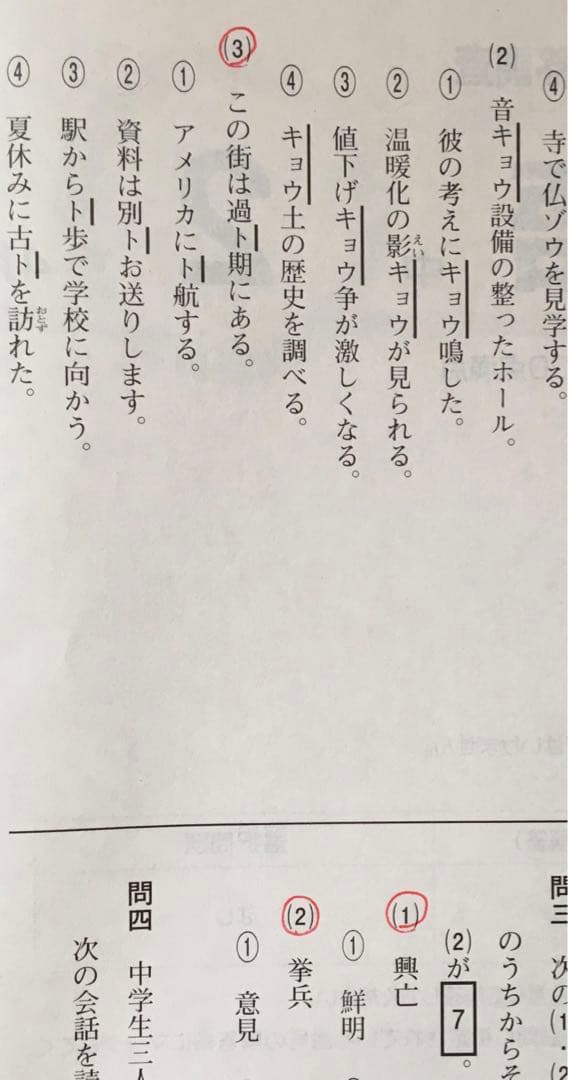 ④ 寺で仏ゾウを見学する。
(2) 音キョウ設備の整ったホール。
① 彼の考えにキョウ鳴した。
② 温暖化の影えいキョウが見られる。
③ 値下げキョウ争が激しくなる。
④ キョウ土の歴史を調べる。
(3) この街は過ト期にある。
① アメリカにト航する。
② 資料は別トお送りします。
③ 駅からト歩で学校に向かう。
④ 夏休みに古トを訪おとずれた。
問三 次の(1)・(2
のうちからそ
(2)が 7 。
(1) 興亡
① 鮮明
(2) 挙兵
① 意見
問四 中学生三人
次の会話を読